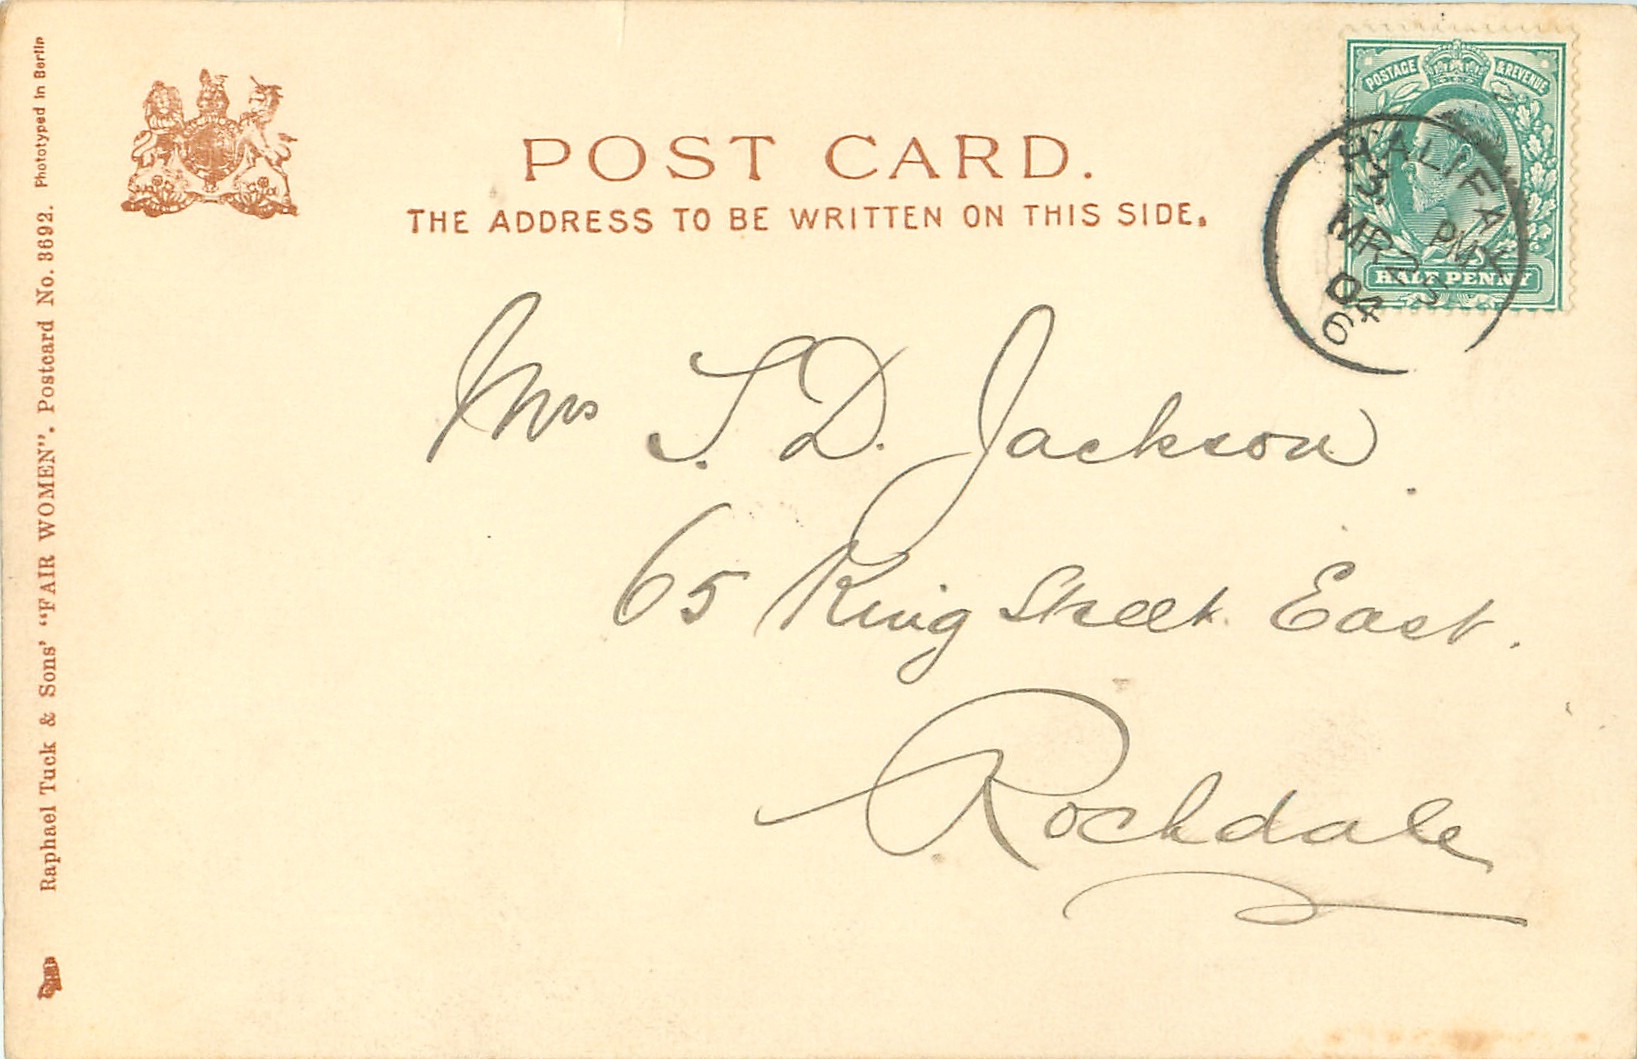 POST CARD.
THE ADDRESS TO BE WRITTEN ON THIS SIDE.
POSTAGE & REVENUE
HALF PENNY
HALIFAX
3 PM
MR 23
04
6
Mrs S. D. Jackson
65 King Street East.
Rochdale
Raphael Tuck & Sons' "FAIR WOMEN". Postcard No. 3692. Phototyped in Berlin